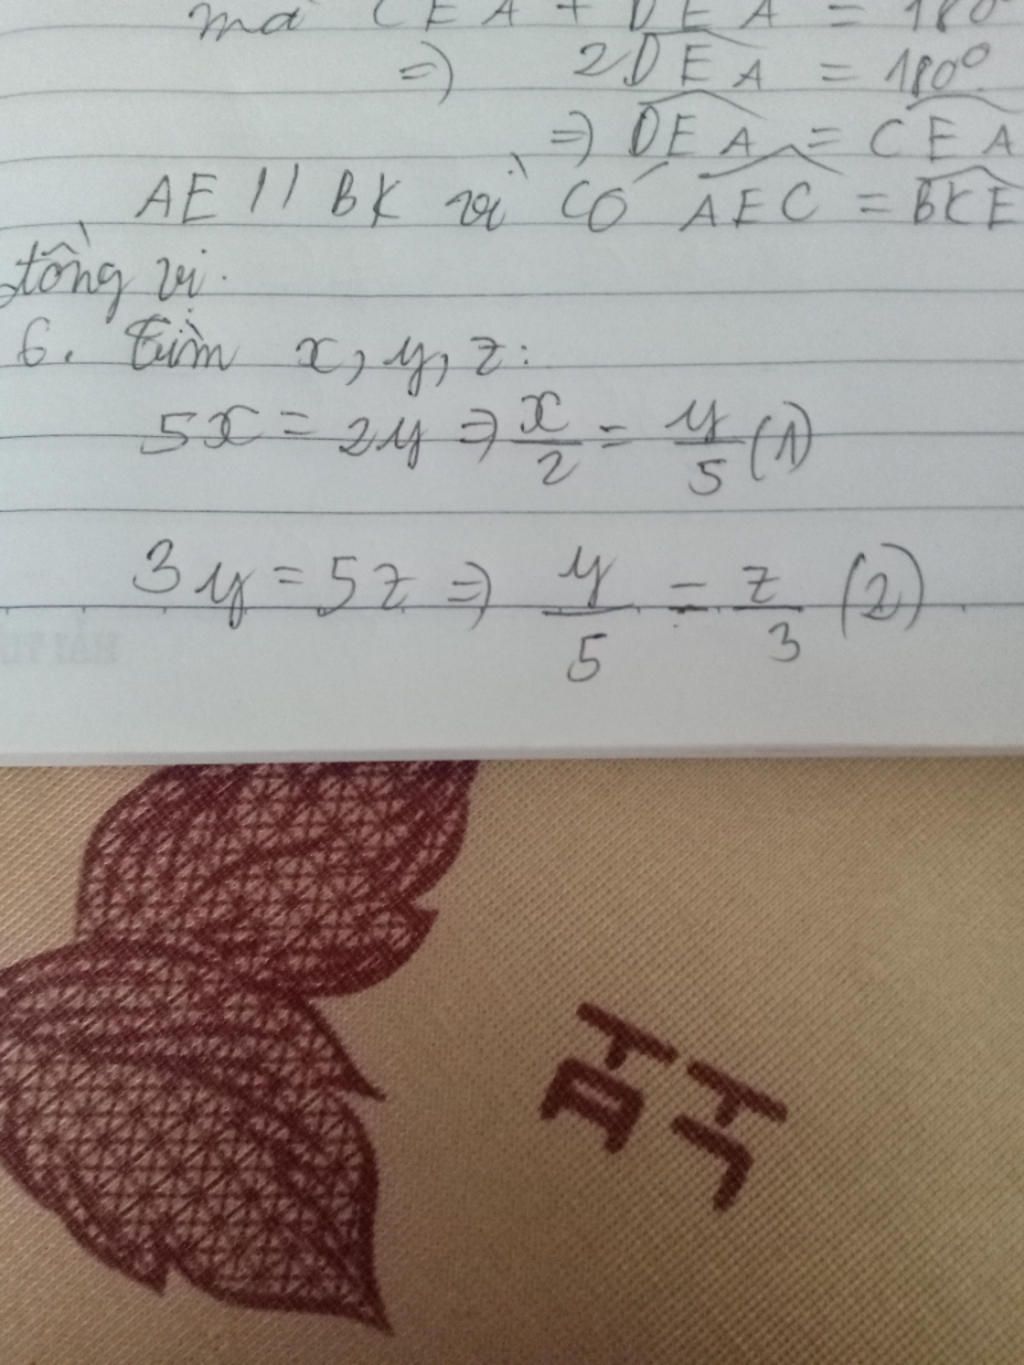 mà CEA + DEA = 180°
=> 2DEA = 180°
=> DEA = CEA
AE // BK vì có AEC = BKE
đồng vị.
6. Tìm x, y, z:
5x = 2y => x/2 = y/5 (1)
3y = 5z => y/5 = z/3 (2)